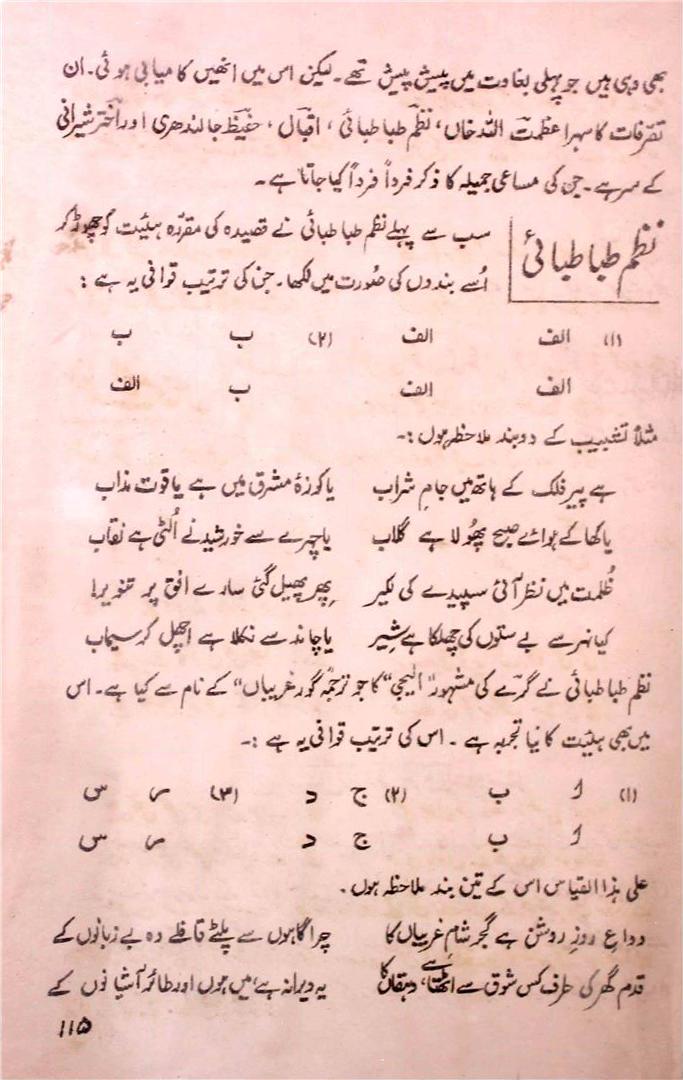 بھی وہی ہیں جو پہلی بغاوت میں پیش پیش تھے۔ لیکن اس میں انھیں کامیابی ہوئی۔ ان
تفرقات کا سہرا عظمت اللہ خاں، نظم طباطبائی، اقبال، حفیظ جالندھری اور اختر شیرانی
کے سر ہے۔ جن کی مساعی جمیلہ کا ذکر فرداً فرداً کیا جاتا ہے۔
نظم طباطبائی
سب سے پہلے نظم طباطبائی نے قصیدہ کی مقررہ ہیئت کو چھوڑ کر
اُسے بندوں کی صورت میں لکھا۔ جن کی ترتیب قوافی یہ ہے :
(۱) الف الف (۲) ب ب
الف الف ب الف
مثلاً تشبیب کے دو بند ملاحظہ ہوں :۔
ہے پیر فلک کے ہاتھ میں جامِ شراب یا کوزۂ مشرق میں ہے یاقوت مذاب
یا کھا کے ہوائے صبح پھولا ہے گلاب یا چہرے سے خورشید نے اُلٹی ہے نقاب
ظُلمت میں نظر آئی سپیدے کی لکیر پھر پھیل گئی سارے افق پر تنویر!
کیا نہر سے بے ستوں کی چھلکا ہے شِیر یا چاند سے نکلا ہے اچھل کر سیماب
نظم طباطبائی نے گرے کی مشہور "الیجی" کا جو ترجمہ "گور غریباں" کے نام سے کیا ہے۔ اس
میں بھی ہیئت کا نیا تجربہ ہے۔ اس کی ترتیب قوافی یہ ہے :۔
(۱) ا ب (۲) ج د (۳) ر س
ا ب ج د ر س
علی ہذا القیاس اس کے تین بند ملاحظہ ہوں۔
وداعِ روزِ روشن ہے گجر شامِ غریباں کا چراگاہوں سے پلٹے قافلے وہ بے زبانوں کے
قدم گھر کی طرف کس شوق سے اٹھتا ہے دہقاں کا یہ ویرانہ ہے، میں ہوں اور طائر آشیانوں کے
۱۱۵